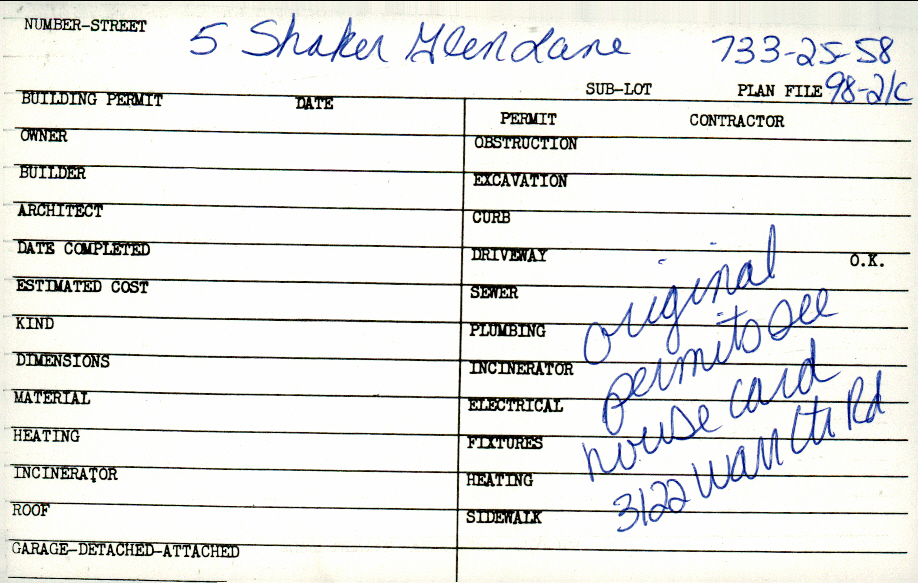 NUMBER-STREET 5 Shaker Glen Lane 733-25-58
SUB-LOT PLAN FILE 98-21C
BUILDING PERMIT DATE
OWNER
BUILDER
ARCHITECT
DATE COMPLETED
ESTIMATED COST
KIND
DIMENSIONS
MATERIAL
HEATING
INCINERATOR
ROOF
GARAGE-DETACHED-ATTACHED
PERMIT CONTRACTOR
OBSTRUCTION
EXCAVATION
CURB
DRIVEWAY O.K.
SEWER
PLUMBING
INCINERATOR
ELECTRICAL
FIXTURES
HEATING
SIDEWALK
original
permits see
house card
3122 Warr Ctr Rd